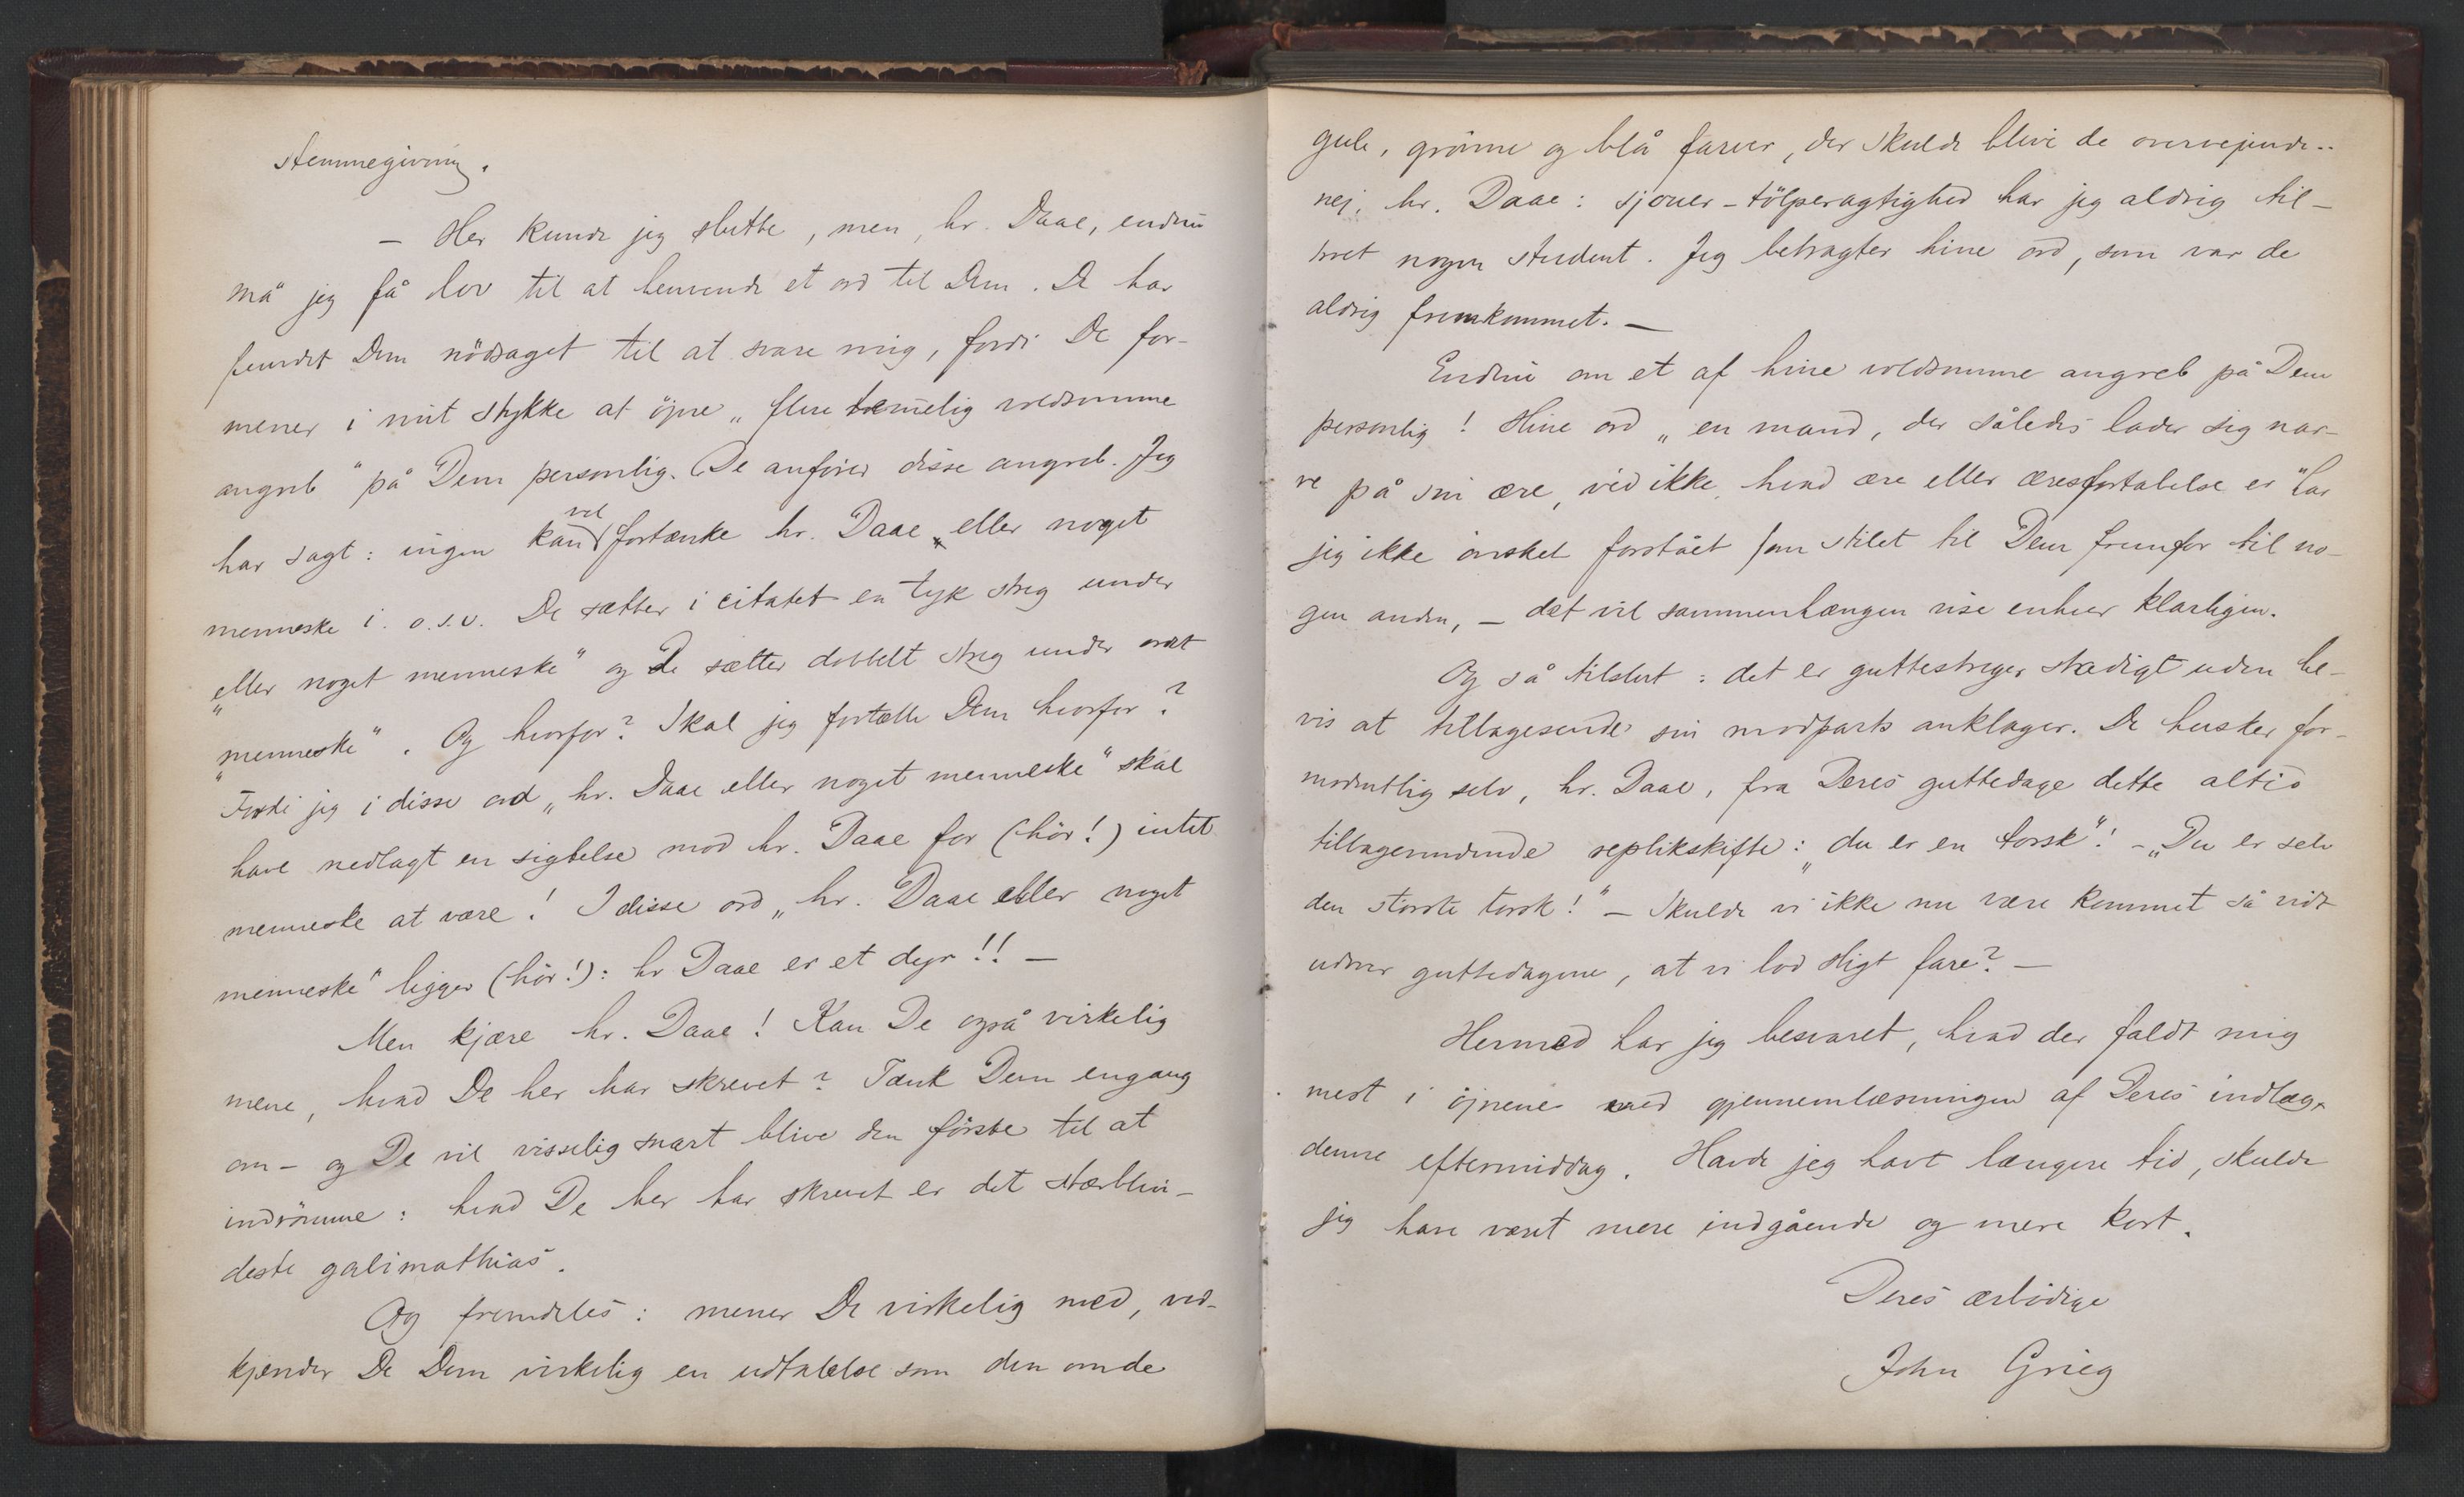 stemmegivning.
— Her kunde jeg slutte, men, hr. Daae, endnu
må jeg få lov til at henvende et ord til Dem. De har
fundet Dem nödsaget til at svare mig, fordi De for-
mener i mit stykke at öjne „flere temmelig voldsomme
angreb" på Dem personlig. De anförer disse angreb. Jeg
har sagt: ingen kan vel fortænke hr. Daae „eller noget
menneske i. o.s.v. De sætter i citatet en tyk streg under
„eller noget menneske" og De sætter dobbelt streg under ordet
„menneske". Og hvorfor? Skal jeg fortælle Dem hvorfor?
Fordi jeg i disse ord „hr. Daae eller noget menneske" skal
have nedlagt en sigtelse mod hr. Daae for (hör!) intet
menneske at være! I disse ord „hr. Daae eller noget
menneske" ligger (hör!): hr Daae er et dyr!! —
Men kjære hr. Daae! Kan De også virkelig
mene, hvad De her har skrevet? Tænk Dem engang
om – og De vil visselig snart blive den förste til at
indrömme: hvad De her har skrevet er det stærblin-
deste galimathias.
Og fremdeles: mener De virkelig med, ved-
kjender De Dem virkelig en udtalelse som den om de
gule, grönne og blå farver, der skulde blive de overvejende..
nej, hr. Daae: sjouer-tölperagtighed har jeg aldrig til-
troet nogen student. Jeg betragter hine ord, som var de
aldrig fremkommet. —
Endnu om et af hine voldsomme angreb på Dem
personlig! Hine ord „en mand, der således lader sig nar-
re på sin ære, ved ikke, hvad ære eller æresfortabelse er" har
jeg ikke önsket forstået som stilet til Dem fremfor til no-
gen anden, — det vil sammenhængen vise enhver klarligen.
Og så tilslut: det er guttestreger stadigt uden be-
vis at tilbagesende sin modparts anklager. De husker for-
modentlig selv, hr. Daae, fra Deres guttedage dette altid
tilbagevendende replikskifte: „du er en torsk"! – „Du er selv
den störste torsk!" — Skulde vi ikke nu være kommet så vidt
udover guttedagene, at vi lod sligt fare? —
Hermed har jeg besvaret, hvad der faldt mig
mest i öjnene ved gjennemlæsningen af Deres indlæg
denne eftermiddag. Havde jeg havt længere tid, skulde
jeg have været mere indgående og mere kort.
Deres ærbödige
John Grieg